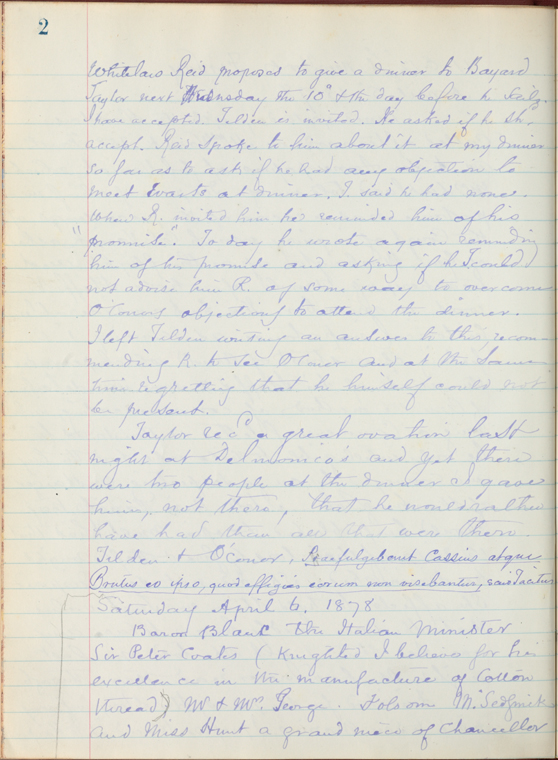 2
Whitelaw Reid proposes to give a dinner to Bayard
Taylor next Wednesday the 10th & the day before he sails.
I have accepted. Tilden is invited. He asked if he shd
accept. Reid spoke to him about it at my dinner
so far as to ask if he had any objection to
meet Evarts at dinner. I said he had none.
When R. invited him he reminded him of his
"promise." To day he wrote again reminding
him of his promise and asking if he Tcould
not advise him R. of some way to overcome
O'Conors objections to attend the dinner.
I left Tilden writing an answer to this recom-
mending R. to see O'Conor and at the same
time regretting that he himself could not
be present.
Taylor recd a great ovation last
night at Delmonicos and yet there
were two people at the dinner I gave
him, not there, that he would rather
have had than all that were there.
Tilden & O'Conor, Praefulgebant Cassius atque
Brutus eo ipso, quod effigies eorum non visebantur, said Tacitus
Saturday April 6. 1878
Baron Blanc the Italian Minister
Sir Peter Coats (Knighted I believe for his
excellence in the manufacture of Cotton
thread) Mr & Mrs. George. Folsom Mr. Sedgwick
and Miss Hunt a grand niece of Chancellor